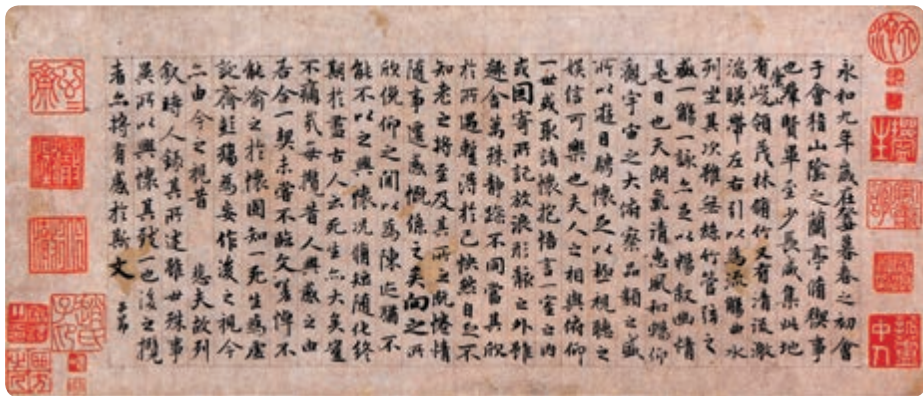 永和九年歲在癸丑暮春之初會
于會稽山陰之蘭亭脩禊事
也羣賢畢至少長咸集此地
有崇山峻領茂林脩竹又有清流激
湍暎帶左右引以為流觴曲水
列坐其次雖無絲竹管弦之
盛一觴一詠亦足以暢叙幽情
是日也天朗氣清惠風和暢仰
觀宇宙之大俯察品類之盛
所以遊目騁懷足以極視聽之
娛信可樂也夫人之相與俯仰
一世或取諸懷抱悟言一室之內
或因寄所託放浪形骸之外雖
趣舍萬殊靜躁不同當其欣
於所遇暫得於己快然自足不
知老之將至及其所之既惓情
隨事遷感慨係之矣向之所
欣俛仰之間以為陳迹猶不
能不以之興懷況脩短隨化終
期於盡古人云死生亦大矣豈
不痛哉每攬昔人興感之由
若合一契未嘗不臨文嗟悼不
能喻之於懷固知一死生為虛
誕齊彭殤為妄作後之視今
亦由今之視昔 悲夫故列
叙時人錄其所述雖世殊事
異所以興懷其致一也後之攬
者亦將有感於斯文 子昂